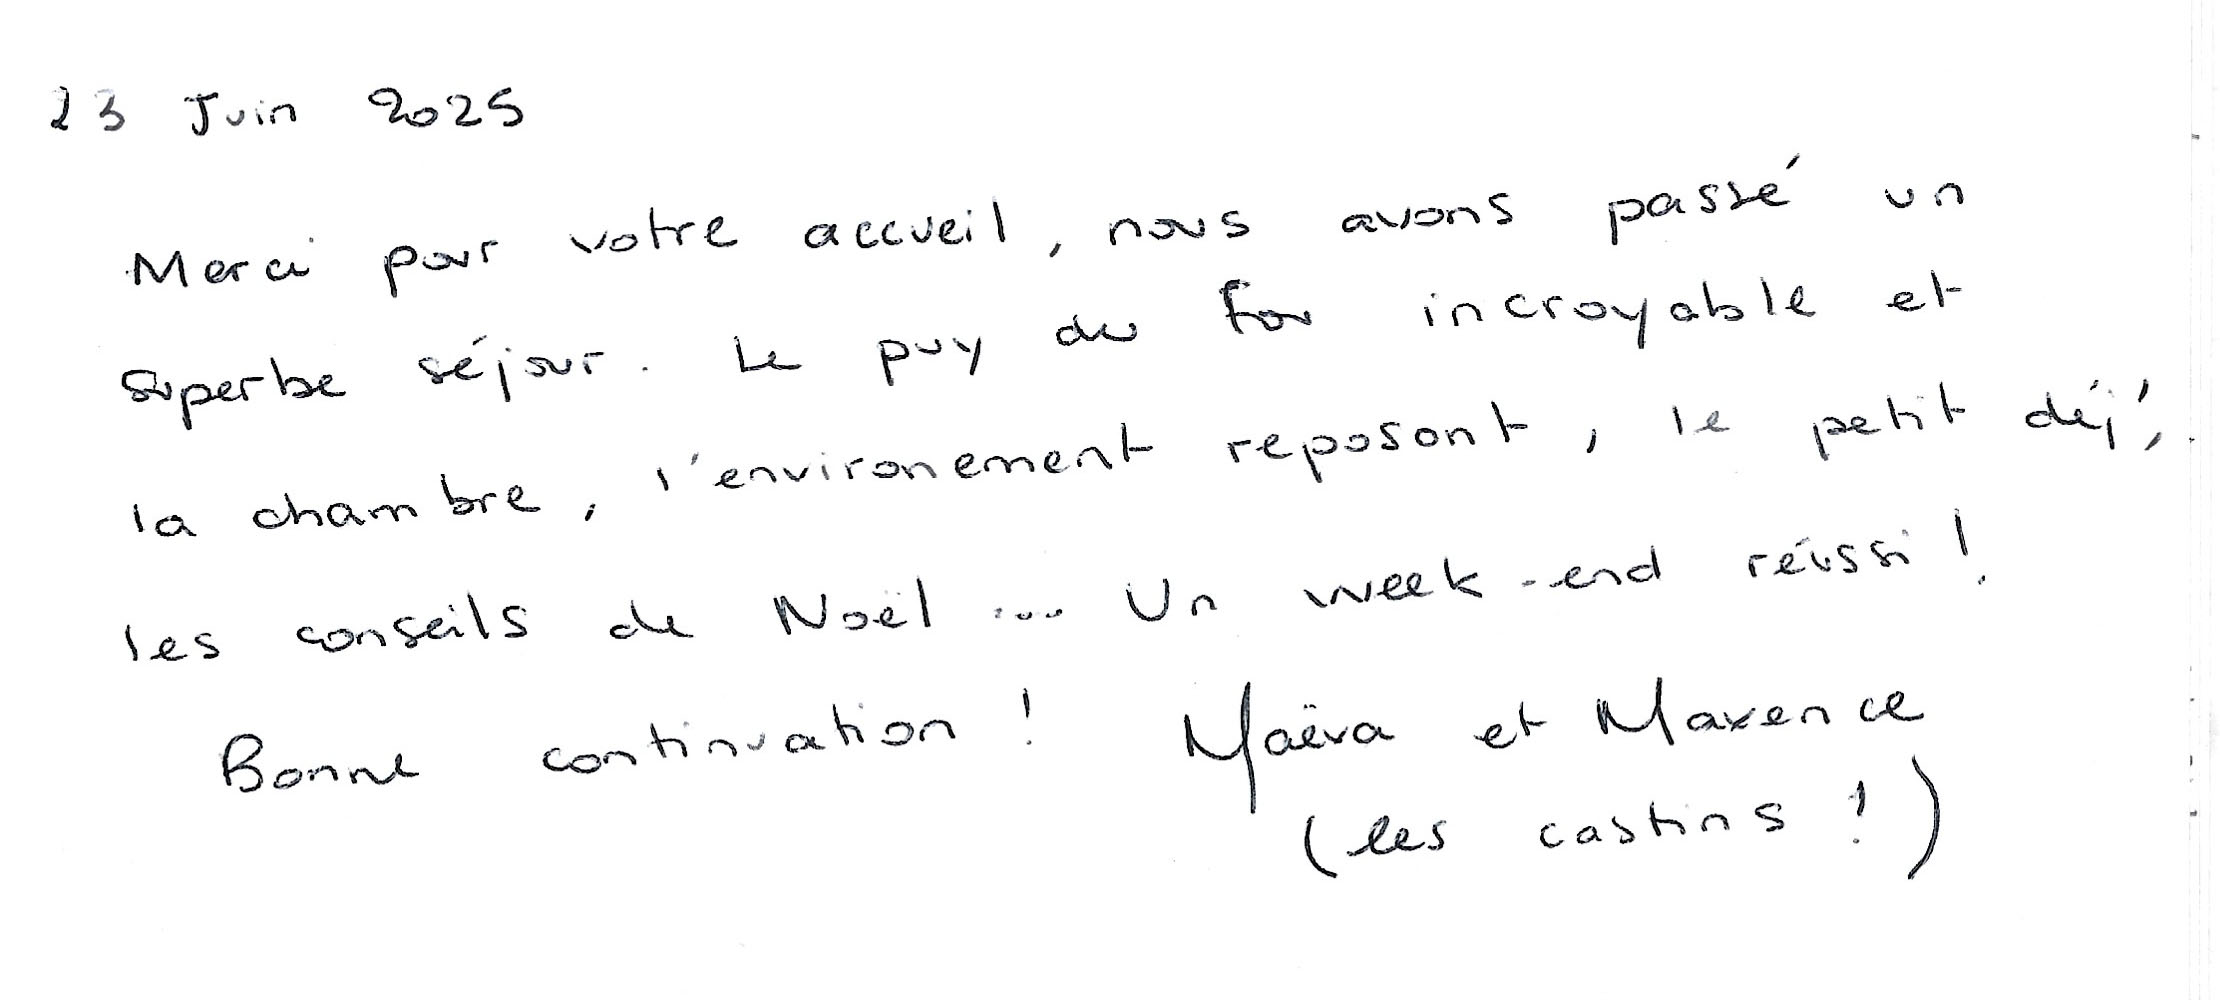 23 Juin 2025
Merci pour votre accueil, nous avons passé un
superbe séjour. Le puy du Fou incroyable et
la chambre, l'environement reposant, le petit déj',
les conseils de Noël .... Un week-end réussi !
Bonne continuation ! Maëva et Maxence
(les castins !)